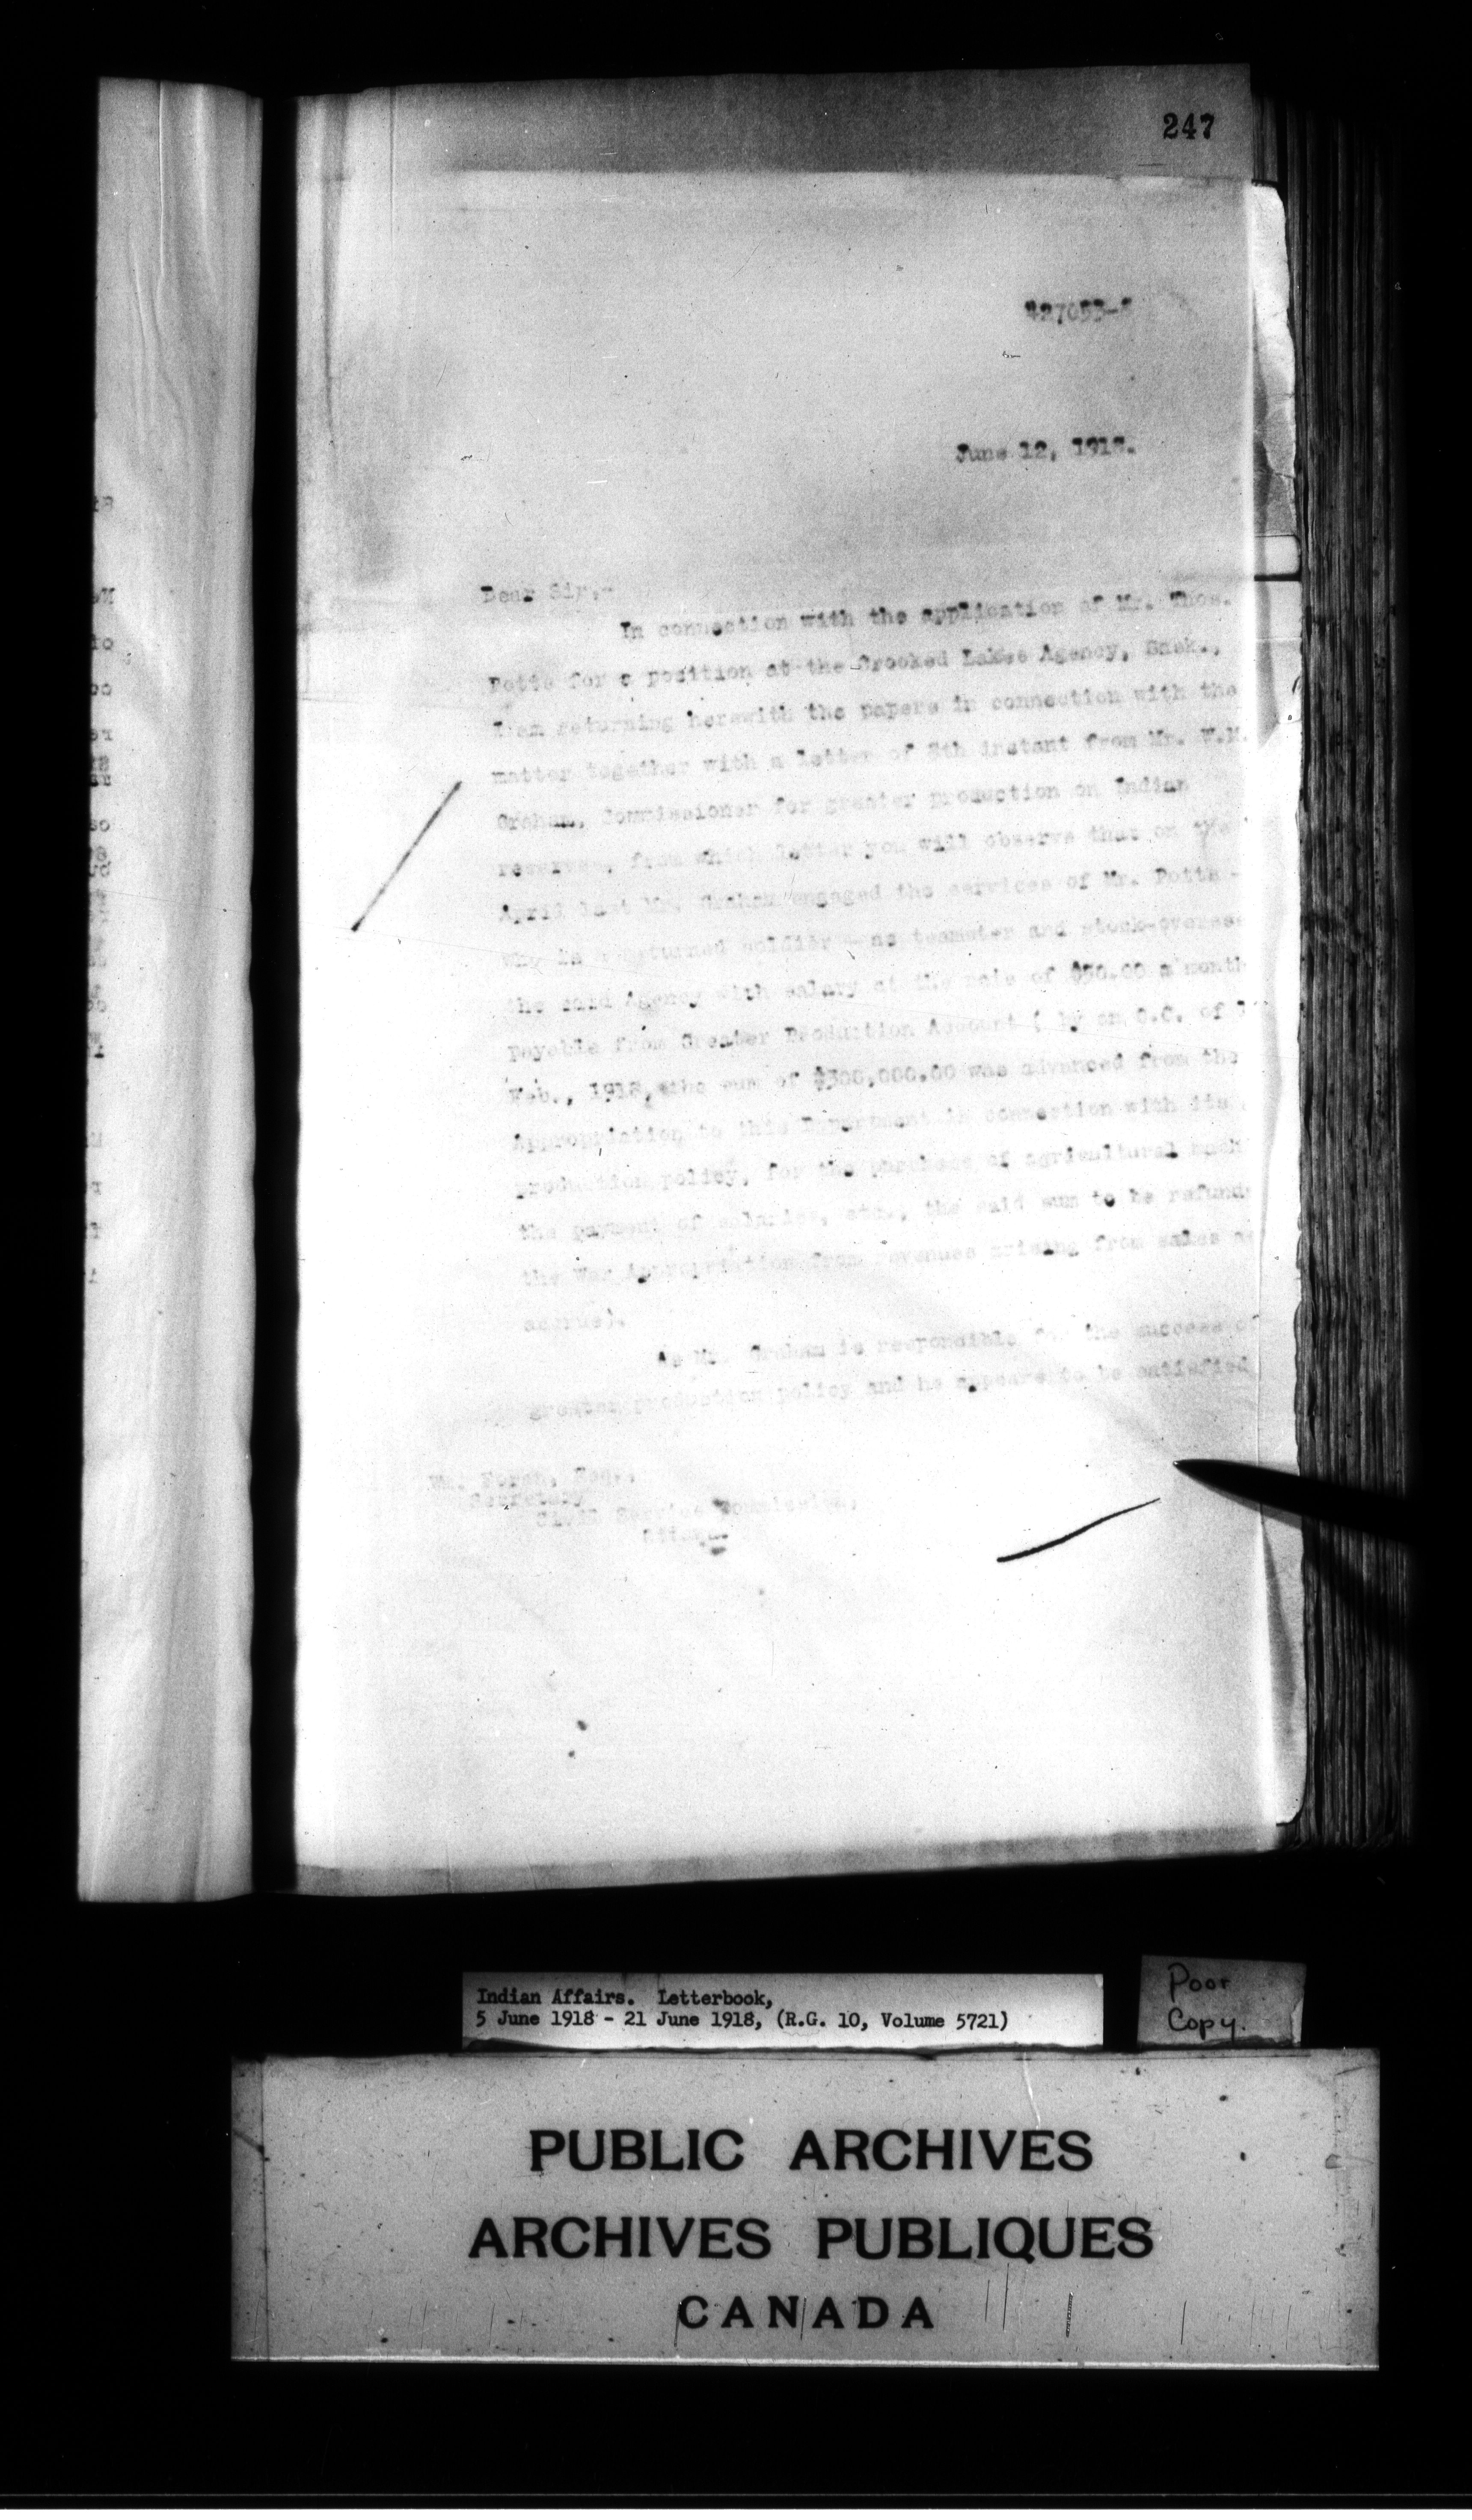 247
427055-
June 12, 1918.
Dear Sir,-
In connection with the application of Mr. Thos.
Potts for a position at the Crooked Lakes Agency, Sask.,
I am returning herewith the papers in connection with the
matter together with a letter of 8th instant from Mr. W.M.
Graham, Commissioner for greater production on Indian
reserves, from which letter you will observe that on the
April last Mr. Graham engaged the services of Mr. Potts -
who is a returned soldier - as teamster and stock-oversee
the said Agency with salary at the rate of $50.00 a month
payable from Greater Production Account ( by an O.C. of
Feb., 1918, the sum of $300,000.00 was advanced from the
Appropriation to this Department in connection with its
production policy, for the purchase of agricultural mach
the payment of salaries, etc., the said sum to be refund
the War Appropriation from revenues arising from sales as
accrue).
As Mr. Graham is responsible for the success of
greater production policy and he appears to be satisfied
Wm. Foran, Esq.,
Secretary
Civil Service Commission,
Ottawa.
Indian Affairs. Letterbook,
5 June 1918 - 21 June 1918, (R.G. 10, Volume 5721)
Poor
Copy.
PUBLIC ARCHIVES
ARCHIVES PUBLIQUES
CANADA